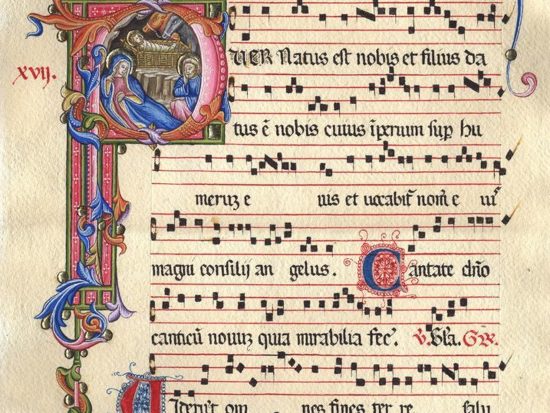 xvij.
PUER Natus est nobis et filius da
tus ē nobis cuius īperium sup hu
meruz e ius et vocabit' nom̄ e iu'
magni consilij an gelus. Cantate dn̄o
canticū novuz quia mirabilia fec'. V. Gła.
Viderūt om nes fines ter re salu